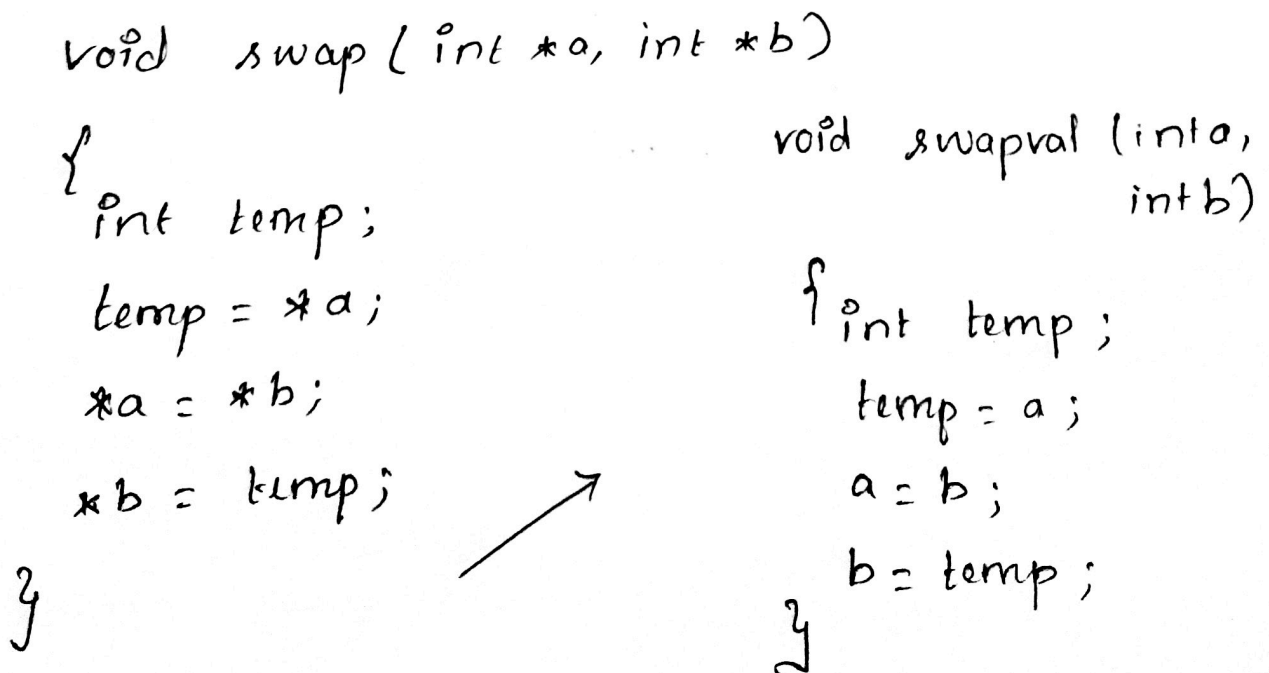 void swap ( int *a, int *b)
{
int temp;
temp = *a;
*a = *b;
*b = temp;
}
void swapval (int a,
int b)
{ int temp;
temp = a;
a = b;
b = temp;
}